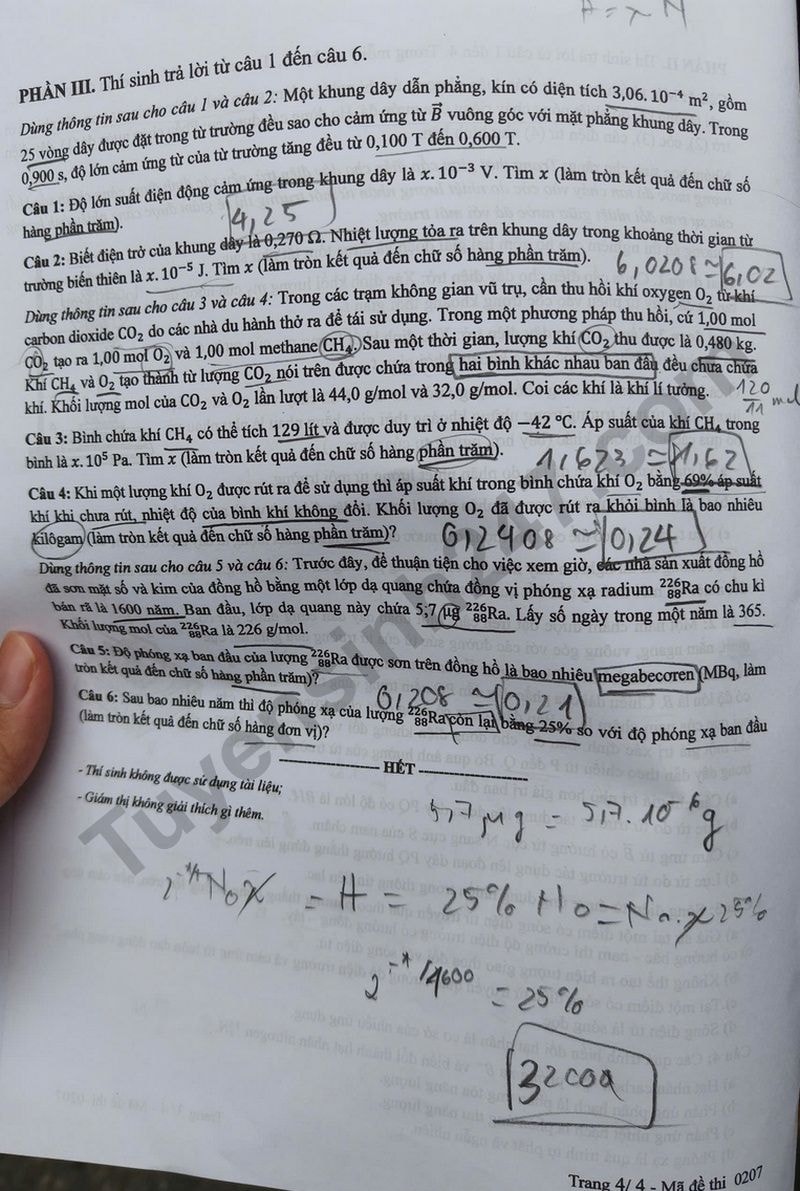 H = x N
PHẦN III. Thí sinh trả lời từ câu 1 đến câu 6.
Dùng thông tin sau cho câu 1 và câu 2: Một khung dây dẫn phẳng, kín có diện tích 3,06.10⁻⁴ m², gồm
25 vòng dây được đặt trong từ trường đều sao cho cảm ứng từ B⃗ vuông góc với mặt phẳng khung dây. Trong
0,900 s, độ lớn cảm ứng từ của từ trường tăng đều từ 0,100 T đến 0,600 T.
Câu 1: Độ lớn suất điện động cảm ứng trong khung dây là x.10⁻³ V. Tìm x (làm tròn kết quả đến chữ số
hàng phần trăm).
4,25
Câu 2: Biết điện trở của khung dây là 0,270 Ω. Nhiệt lượng tỏa ra trên khung dây trong khoảng thời gian từ
trường biến thiên là x.10⁻⁵ J. Tìm x (làm tròn kết quả đến chữ số hàng phần trăm).
6,0208 ≈ 6,02
Dùng thông tin sau cho câu 3 và câu 4: Trong các trạm không gian vũ trụ, cần thu hồi khí oxygen O₂ từ khí
carbon dioxide CO₂ do các nhà du hành thở ra để tái sử dụng. Trong một phương pháp thu hồi, cứ 1,00 mol
CO₂ tạo ra 1,00 mol O₂ và 1,00 mol methane CH₄. Sau một thời gian, lượng khí CO₂ thu được là 0,480 kg.
Khí CH₄ và O₂ tạo thành từ lượng CO₂ nói trên được chứa trong hai bình khác nhau ban đầu đều chưa chứa
khí. Khối lượng mol của CO₂ và O₂ lần lượt là 44,0 g/mol và 32,0 g/mol. Coi các khí là khí lí tưởng.
120/11 mol
Câu 3: Bình chứa khí CH₄ có thể tích 129 lít và được duy trì ở nhiệt độ −42 °C. Áp suất của khí CH₄ trong
bình là x.10⁵ Pa. Tìm x (làm tròn kết quả đến chữ số hàng phần trăm).
1,623 ≈ 1,62
Câu 4: Khi một lượng khí O₂ được rút ra để sử dụng thì áp suất khí trong bình chứa khí O₂ bằng 69% áp suất
khí khi chưa rút, nhiệt độ của bình khí không đổi. Khối lượng O₂ đã được rút ra khỏi bình là bao nhiêu
kilôgam (làm tròn kết quả đến chữ số hàng phần trăm)?
0,2408 ≈ 0,24
Dùng thông tin sau cho câu 5 và câu 6: Trước đây, để thuận tiện cho việc xem giờ, các nhà sản xuất đồng hồ
đã sơn mặt số và kim của đồng hồ bằng một lớp dạ quang chứa đồng vị phóng xạ radium ²²⁶₈₈Ra có chu kì
bán rã là 1600 năm. Ban đầu, lớp dạ quang này chứa 5,7 μg ²²⁶₈₈Ra. Lấy số ngày trong một năm là 365.
Khối lượng mol của ²²⁶₈₈Ra là 226 g/mol.
Câu 5: Độ phóng xạ ban đầu của lượng ²²⁶₈₈Ra được sơn trên đồng hồ là bao nhiêu megabecơren (MBq, làm
tròn kết quả đến chữ số hàng phần trăm)?
0,208 ≈ 0,21
Câu 6: Sau bao nhiêu năm thì độ phóng xạ của lượng ²²⁶₈₈Ra còn lại bằng 25% so với độ phóng xạ ban đầu
(làm tròn kết quả đến chữ số hàng đơn vị)?
HẾT
- Thí sinh không được sử dụng tài liệu;
- Giám thị không giải thích gì thêm.
5,7 μg = 5,7.10⁻⁶ g
= H = 25% H₀ = N₀.x 25%
/1600 = 25%
3200a
Tuyensinh247.com
Trang 4/ 4 - Mã đề thi 0207